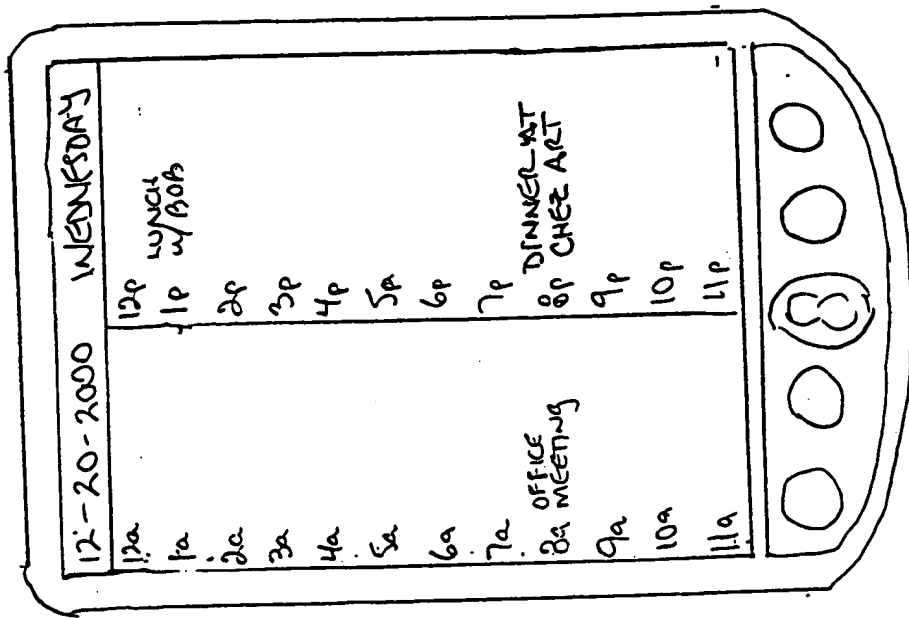 12-20-2000 WEDNESDAY
12a
1a
2a
3a
4a
5a
6a
7a
8a OFFICE MEETING
9a
10a
11a
12p
1p LUNCH W/BOB
2p
3p
4p
5p
6p
7p
8p DINNER AT CHEZ ART
9p
10p
11p